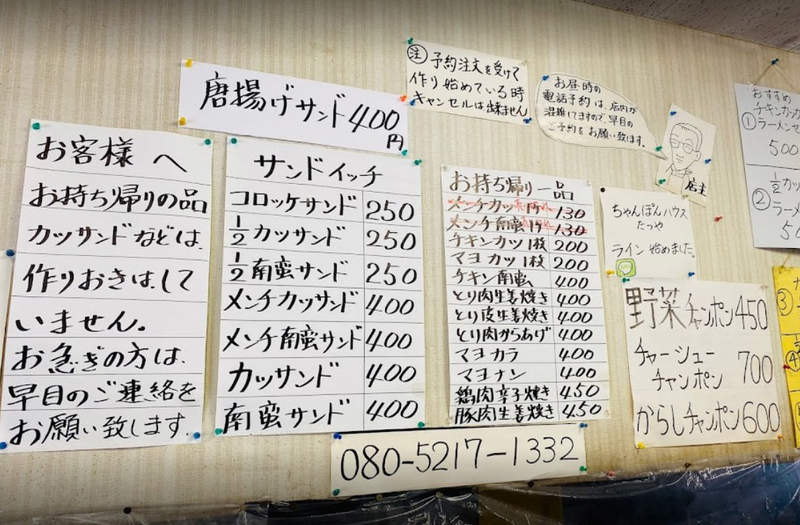 唐揚げサンド400円
㊟予約注文を受けて
作り始めている時
キャンセルは出来ません
お昼時の
電話予約は、店内が
混雑してますので、早目の
ご予約をお願い致します。
店主
お客様へ
お持ち帰りの品
カツサンドなどは、
作りおきはして
いません。
お急ぎの方は、
早目のご連絡を
お願い致します。
サンドイッチ
コロッケサンド 250
½カツサンド 250
½南蛮サンド 250
メンチカツサンド 400
メンチ南蛮サンド 400
カツサンド 400
南蛮サンド 400
お持ち帰り一品
メンチカツ 1ケ 130
メンチ南蛮 1ケ 130
チキンカツ 1枚 200
マヨカツ 1枚 200
チキン南蛮 400
とり肉生姜焼き 400
とり皮生姜焼き 400
とり肉からあげ 400
マヨカラ 400
マヨナン 400
鶏肉辛子焼き 450
豚肉生姜焼き 450
080-5217-1332
ちゃんぽんハウス
たつや
ライン始めました。
野菜チャンポン 450
チャーシュー
チャンポン 700
からしチャンポン 600
おすすめ
チキンカツ
①ラーメンセ
500
②½カツ
ラーメ
50
③
④